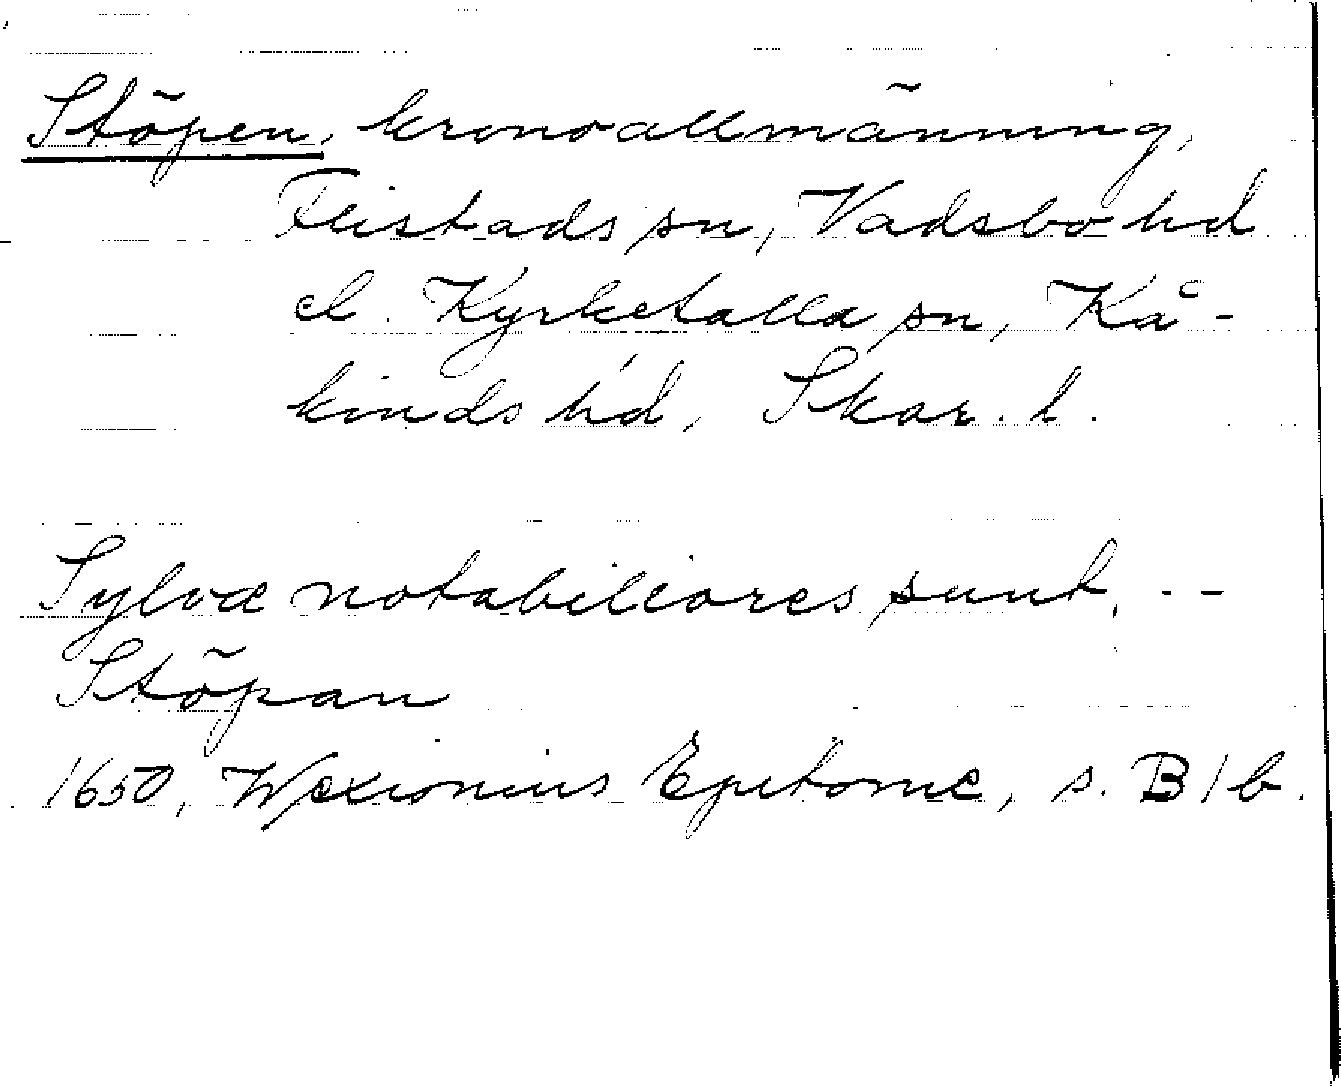 Stöpen, kronoallmänning,
Flistads sn, Vadsbo hd
el. Kyrketalla sn, Kå-
kinds hd, Skar. l.
Sylvæ notabiliores sunt, --
Stöpan
1650, Wexionius Epitome, s. B1b.